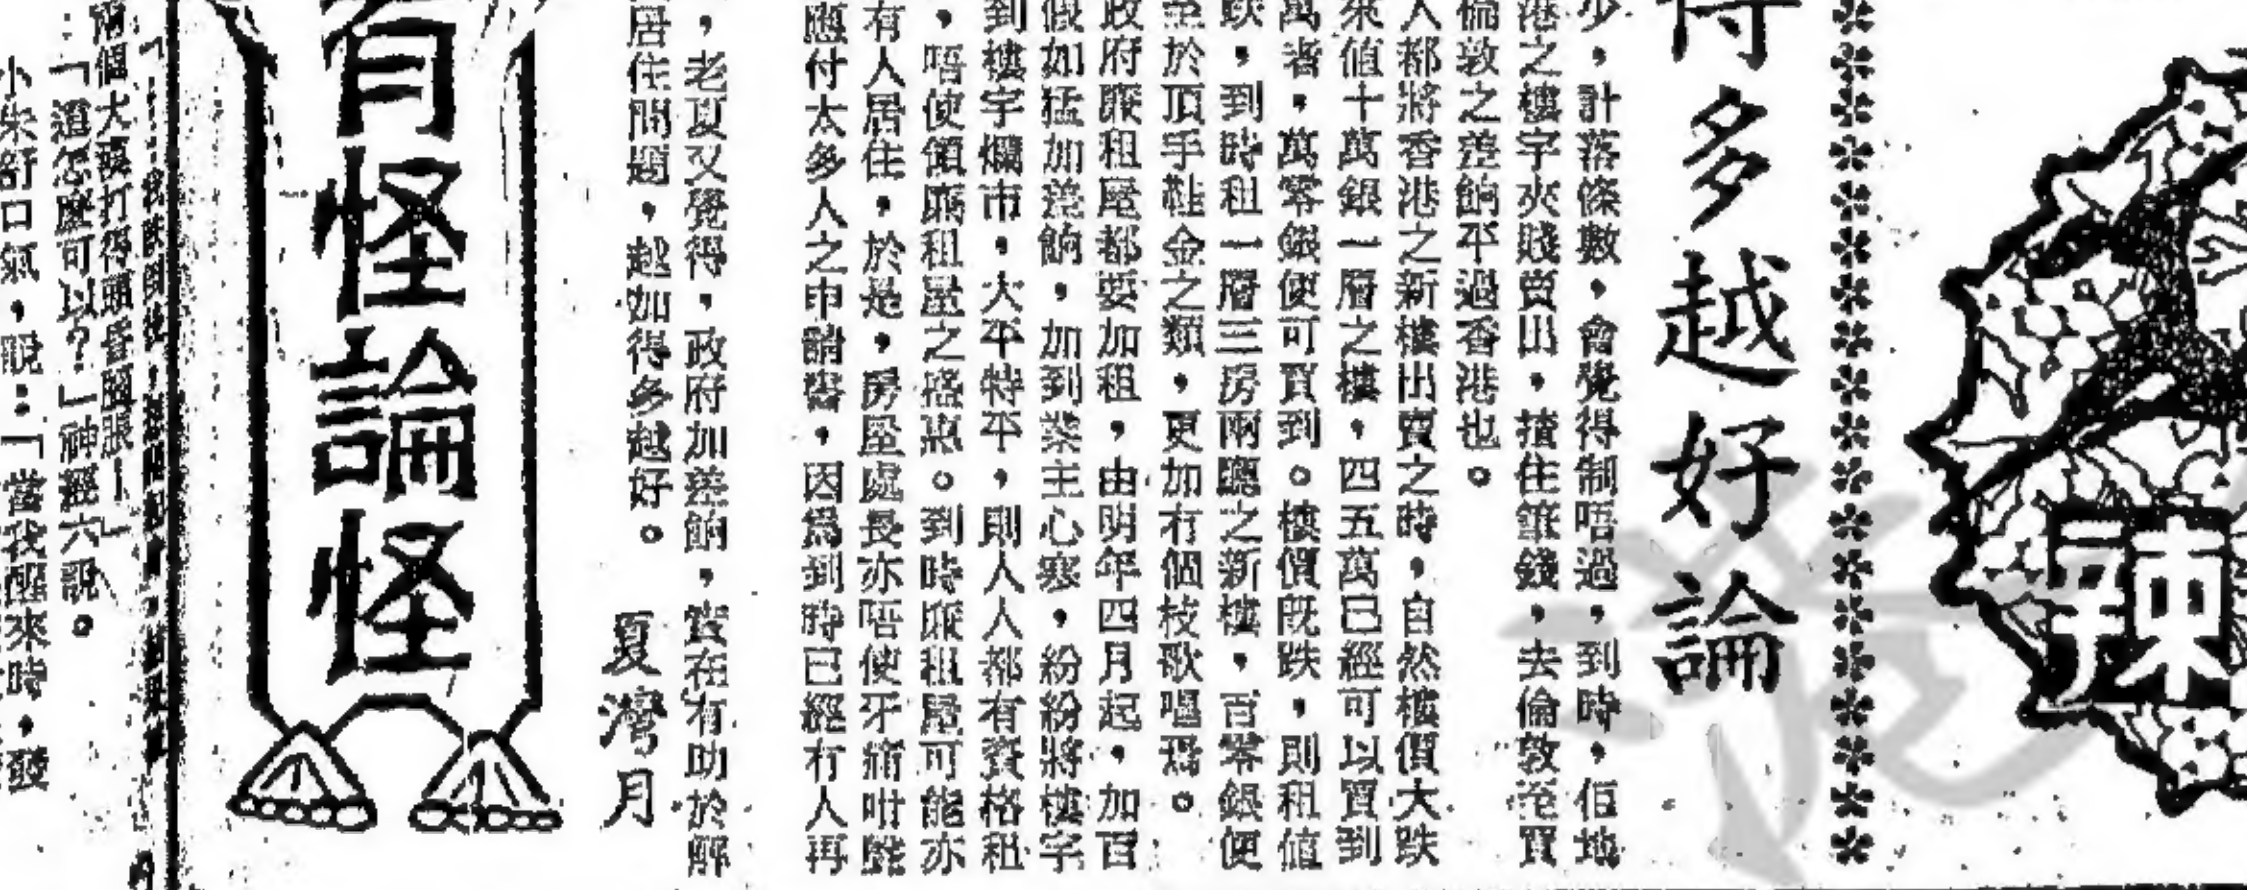 辣
得多越好論
少，計落條數，會覺得制唔過，到時，佢地
港之樓宇夾賤賣出，揸住筆錢，去倫敦至買
倫敦之差餉平過香港也。
人都將香港之新樓出賣之時，自然樓價大跌
來值十萬銀一層之樓，四五萬已經可以買到
萬者，萬零銀便可買到。樓價既跌，則租值
跌，到時租一層三房兩廳之新樓，百零銀便
至於頂手鞋金之類，更加冇個枝歌唱添。
政府廉租屋都要加租，由明年四月起，加百
假如猛加差餉，加到業主心寒，紛紛將樓宇
到樓宇爛市，大平特平，則人人都有資格租
，唔使領廉租屋之盛惠。到時廉租屋可能亦
有人居住，於是，房屋處長亦唔使牙痛咁聲
應付太多人之申請書，因為到時已經冇人再
，老夏又覺得，政府加差餉，實在有助於解
居住問題，越加得多越好。
夏灣月
有怪論怪
兩個大漢打得頭昏腦脹！」
：「這怎麼可以？」神經六說。
小朱舒口氣，說：「當我醒來時，發